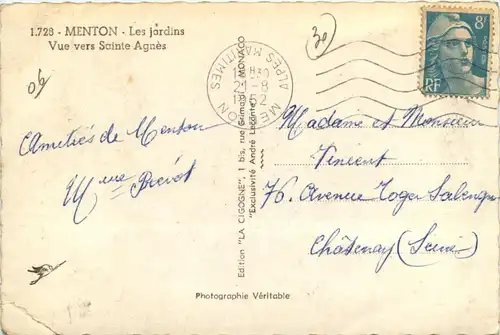 1.728 - MENTON - Les jardins
Vue vers Sainte Agnès
06
30
8F
RF
MENTON
ALPES MARITIMES
Amitiés de Menton
Mme
Edition "LA CIGOGNE", 1 bis, rue Grimaldi - MONACO
"Exclusivité André Leconte"
Madame et Monsieur
Vincent
76, Avenue Roger Salengro
Châtenay (Seine)
Photographie Véritable